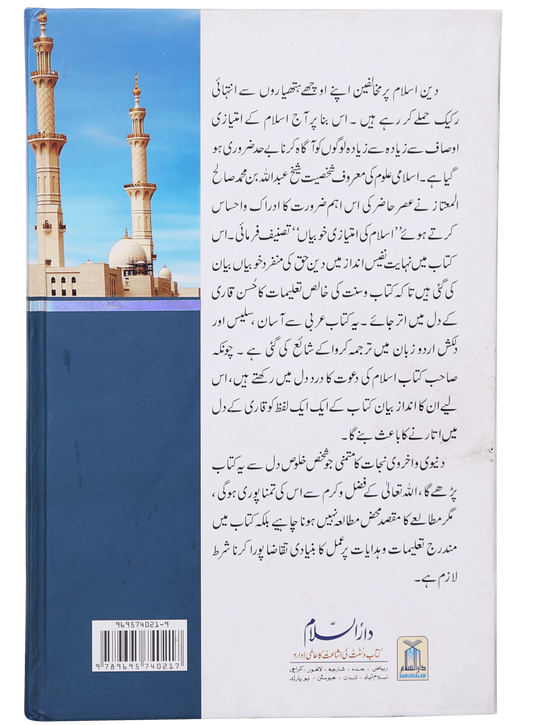 دین اسلام پر مخالفین اپنے اوچھے ہتھیاروں سے انتہائی
رکیک حملے کر رہے ہیں ۔ اس بنا پر آج اسلام کے امتیازی
اوصاف سے زیادہ سے زیادہ لوگوں کو آگاہ کرنا بے حد ضروری ہو
گیا ہے۔ اسلامی علوم کی معروف شخصیت شیخ عبداللہ بن محمد صالح
المعتاز نے عصر حاضر کی اس اہم ضرورت کا ادراک و احساس
کرتے ہوئے ”اسلام کی امتیازی خوبیاں“ تصنیف فرمائی۔ اس
کتاب میں نہایت نفیس انداز میں دین حق کی منفرد خوبیاں بیان
کی گئی ہیں تاکہ کتاب و سنت کی خالص تعلیمات کا حُسن قاری
کے دل میں اتر جائے ۔ یہ کتاب عربی سے آسان ، سلیس اور
دلکش اردو زبان میں ترجمہ کروا کے شائع کی گئی ہے ۔ چونکہ
صاحب کتاب اسلام کی دعوت کا درد دل میں رکھتے ہیں، اس
لیے ان کا انداز بیان کتاب کے ایک ایک لفظ کو قاری کے دل
میں اتارنے کا باعث بنے گا۔
دنیوی و اخروی نجات کا متمنی جو شخص خلوص دل سے یہ کتاب
پڑھے گا، اللہ تعالیٰ کے فضل و کرم سے اس کی تمنا پوری ہوگی ،
مگر مطالعے کا مقصد محض مطالعہ نہیں ہونا چاہیے بلکہ کتاب میں
مندرج تعلیمات و ہدایات پر عمل کا بنیادی تقاضا پورا کرنا شرط
لازم ہے۔
دارُالسّلام
کتاب و سنت کی اشاعت کا عالمی ادارہ
ریاض ، جدہ ، شارجہ ، لاہور ، کراچی
اسلام آباد ، لندن ، ھیوسٹن ، نیویارک
دارالسلام
DARUSSALAM
969574021-9
9789695740217